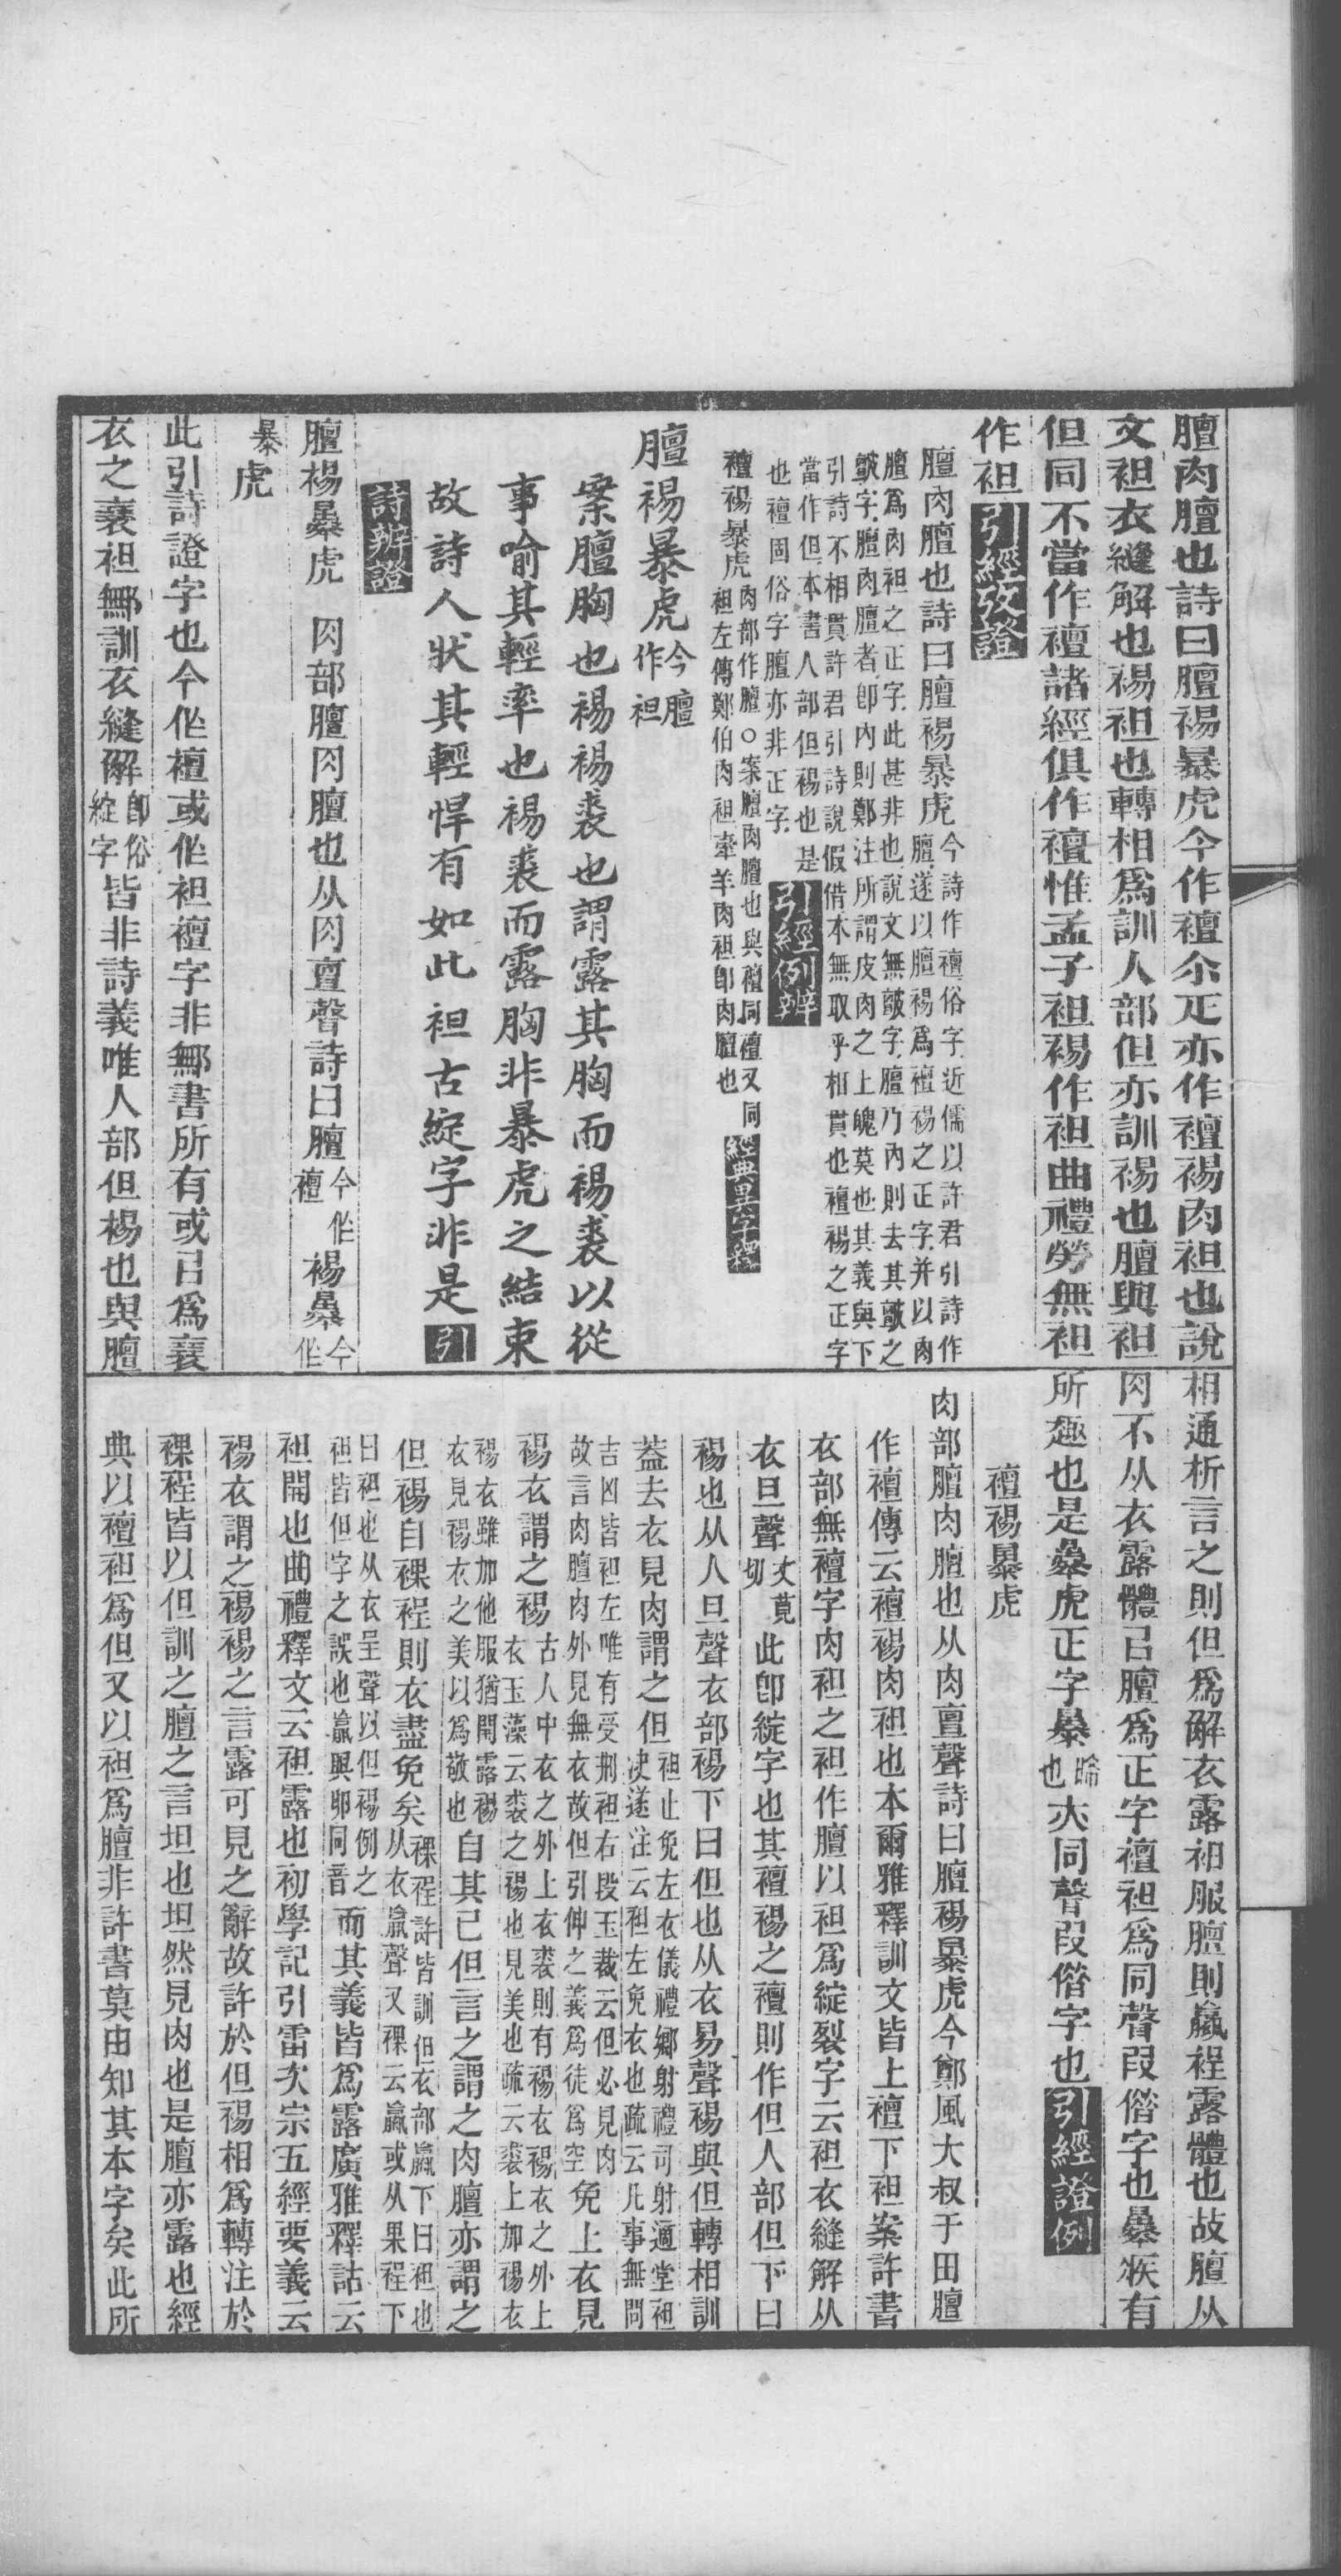 膻肉膻也詩曰膻裼暴虎今作襢尒疋亦作襢裼肉袒也說
文袒衣縫解也裼袒也轉相爲訓人部但亦訓裼也膻與袒
但同不當作襢諸經俱作襢惟孟子袒裼作袒曲禮勞無袒
作袒引經攷證
膻肉膻也詩曰膻裼暴虎今詩作襢俗字近儒以許君引詩作
膻遂以膻裼爲襢裼之正字并以肉
膻爲肉袒之正字此甚非也說文無皽字膻乃內則去其皽之
皽字膻肉膻者卽內則鄭注所謂皮肉之上魄莫也其義與下
引詩不相貫許君引詩說假借本無取乎相貫也襢裼之正字
當作但本書人部但裼也是引經例辨
也襢固俗字膻亦非正字
襢裼暴虎肉部作膻○案膻肉膻也與襢同襢又同
袒左傳鄭伯肉袒牽羊肉袒卽肉膻也經典異字釋
膻裼暴虎今膻
作袒
案膻胸也裼裼裘也謂露其胸而裼裘以從
事喻其輕率也裼裘而露胸非暴虎之結束
故詩人狀其輕悍有如此袒古綻字非是引
詩辨證
膻裼暴虎 肉部膻肉膻也从肉亶聲詩曰膻今作
襢裼暴今作
暴虎
此引詩證字也今作襢或作袒襢字非鄦書所有或㠯爲襄
衣之襄袒鄦訓衣縫解卽俗
綻字皆非詩義唯人部但裼也與膻
相通析言之則但爲解衣露袒服膻則臝裎露體也故膻从
肉不从衣露體㠯膻爲正字襢袒爲同聲叚借字也暴疾有
所趣也是暴虎正字暴晞
也亦同聲叚借字也引經證例
襢裼暴虎
肉部膻肉膻也从肉亶聲詩曰膻裼暴虎今鄭風大叔于田膻
作襢傳云襢裼肉袒也本爾雅釋訓文皆上襢下袒案許書
衣部無襢字肉袒之袒作膻以袒爲綻裂字云袒衣縫解从
衣旦聲丈莧
切此卽綻字也其襢裼之襢則作但人部但下曰
裼也从人旦聲衣部裼下曰但也从衣易聲裼與但轉相訓
葢去衣見肉謂之但袒止免左衣儀禮鄉射禮司射適堂袒
決遂注云袒左免衣也疏云凡事無問
吉凶皆袒左唯有受刑袒右段玉裁云但必見肉
故言肉膻肉外見無衣故但引伸之義爲徒爲空免上衣見
裼衣謂之裼古人中衣之外上衣裘則有裼衣裼衣之外上
衣玉藻云裘之裼也見美也疏云裘上加裼衣
裼衣雖加他服猶開露裼
衣見裼衣之美以爲敬也自其已但言之謂之肉膻亦謂之
但裼自裸裎則衣盡免矣裸裎許皆訓但衣部臝下曰袒也
从衣臝聲又裸云臝或从果裎下
曰袒也从衣呈聲以但裼例之
袒皆但字之誤也臝與卵同音而其義皆爲露廣雅釋詁云
袒開也曲禮釋文云袒露也初學記引雷次宗五經要義云
裼衣謂之裼裼之言露可見之辭故許於但裼相爲轉注於
裸裎皆以但訓之膻之言坦也坦然見肉也是膻亦露也經
典以襢袒爲但又以袒爲膻非許書莫由知其本字矣此所